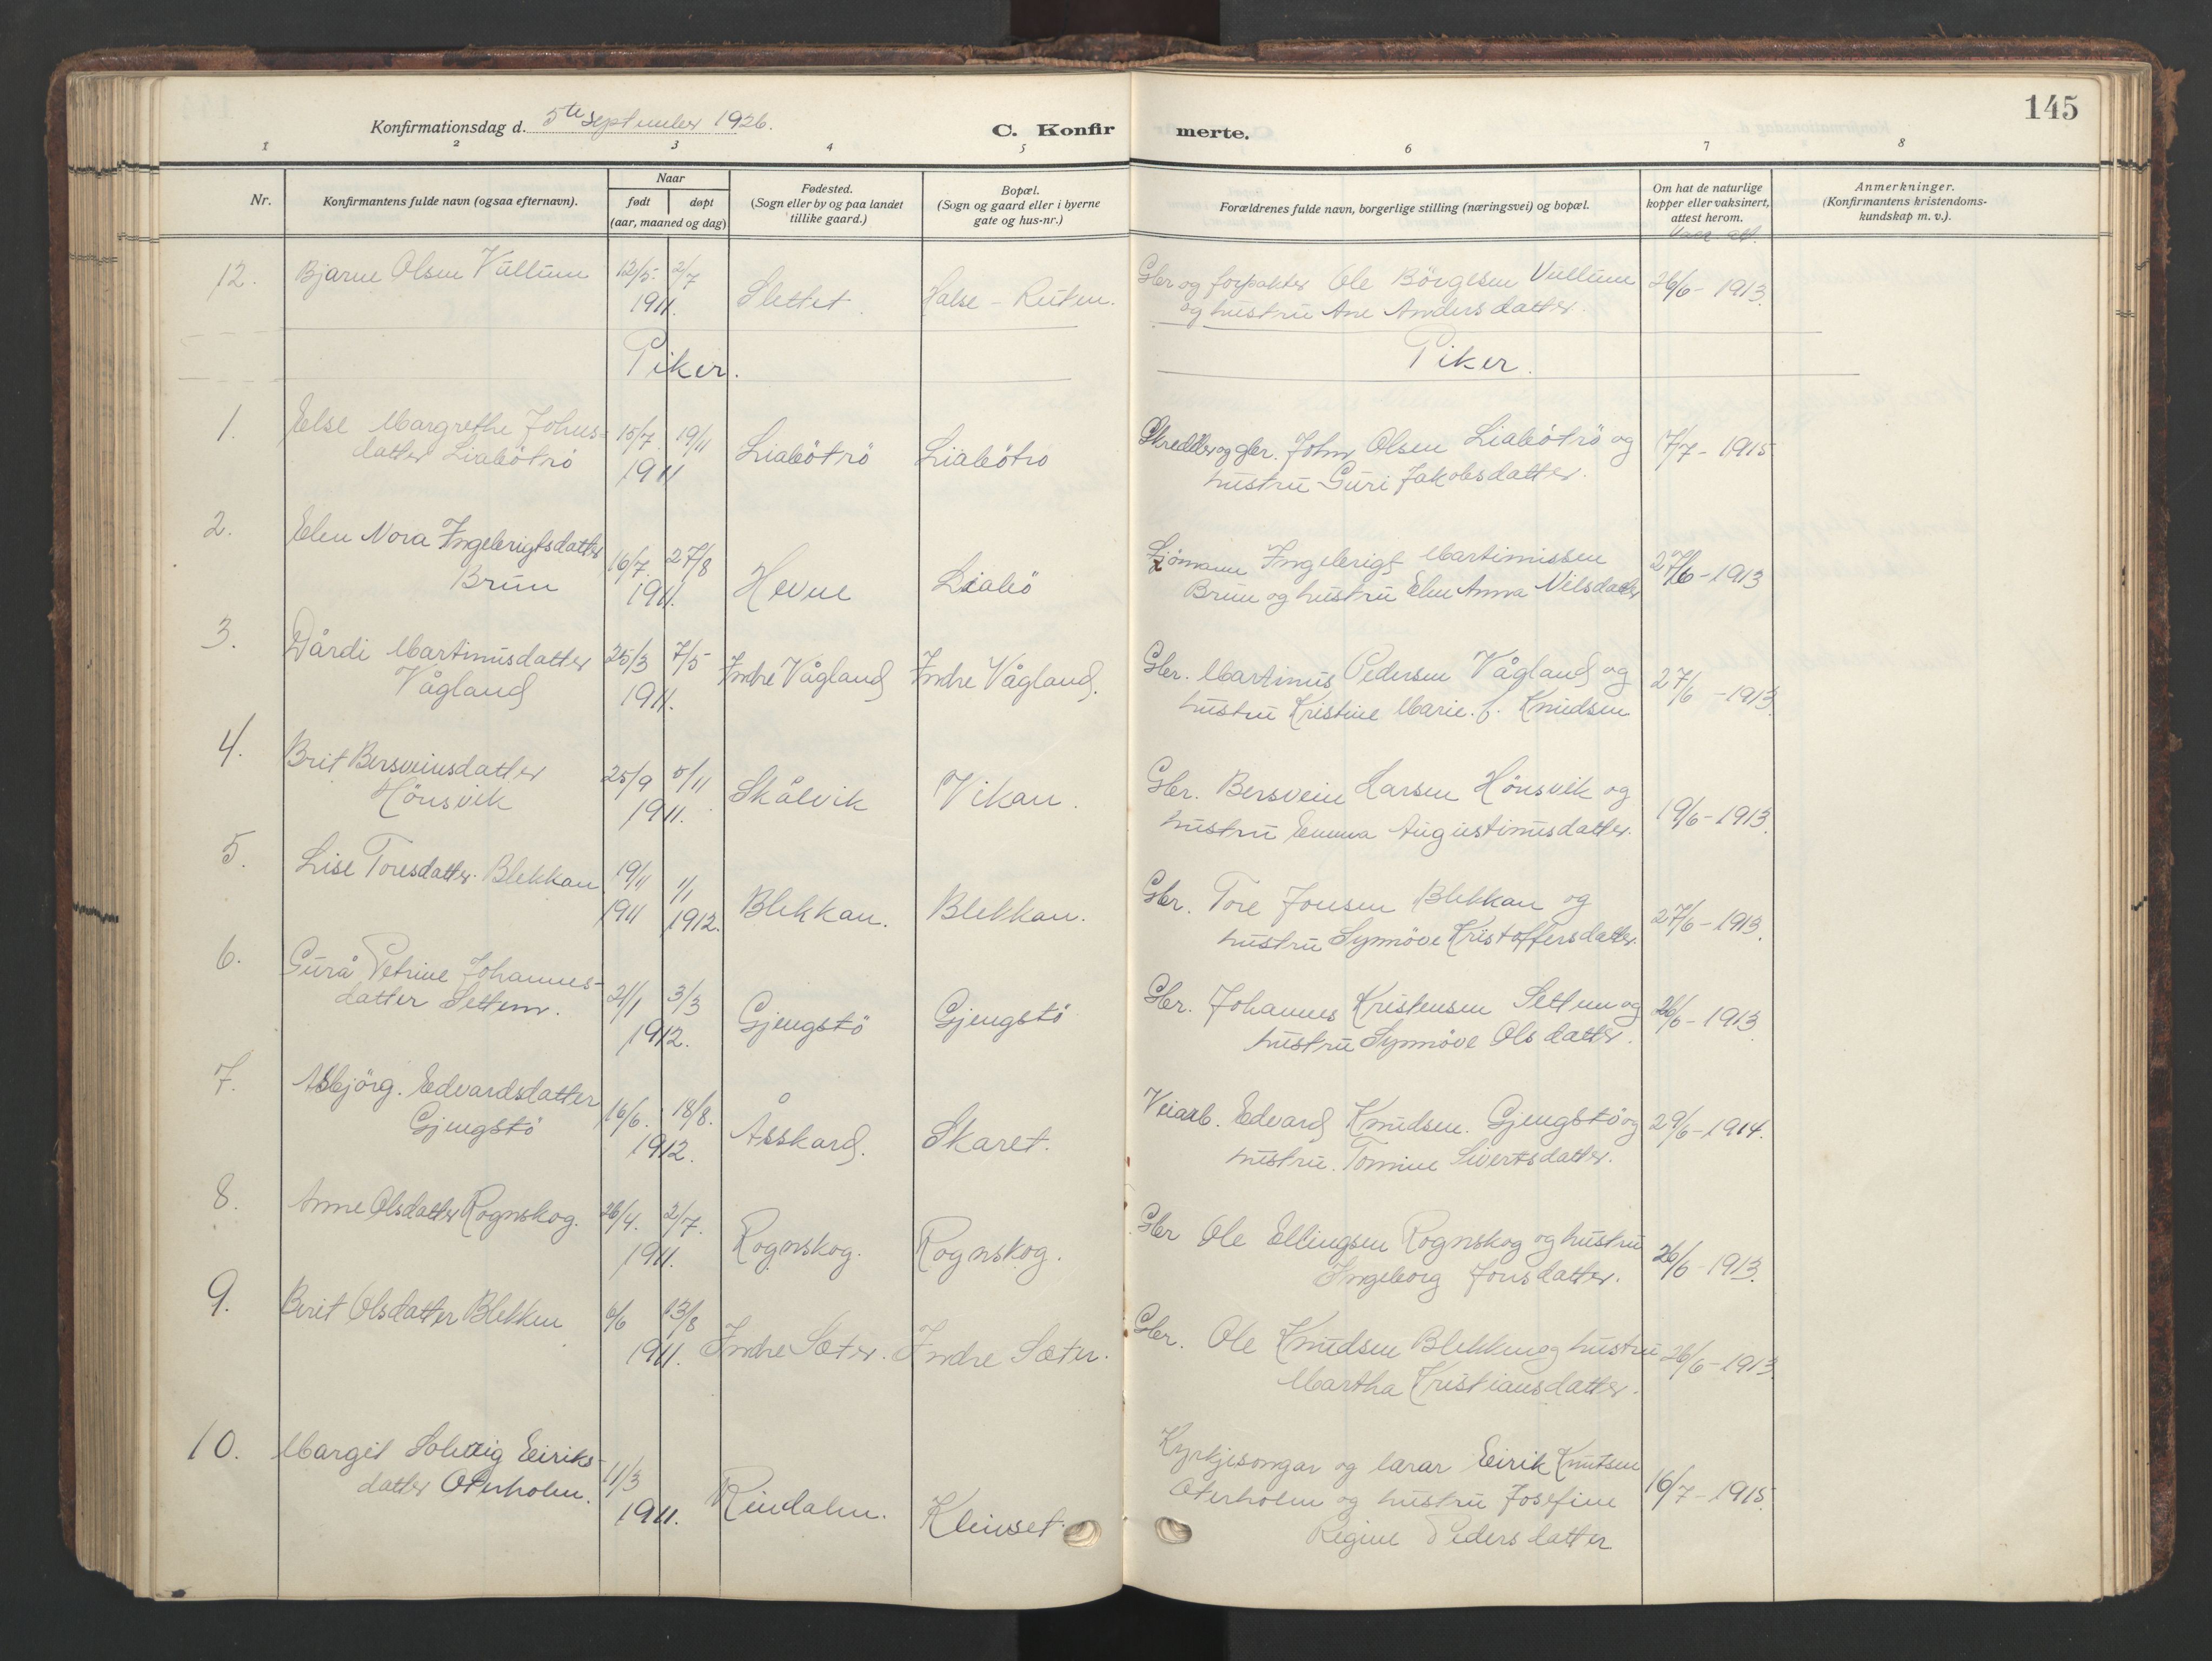 145
Konfirmationsdag d. 5te September 1926.
C. Konfirmerte.
1 2 3 4 5 6 7 8
Nr.
Konfirmantens fulde navn (ogsaa efternavn).
Naar
født døpt
(aar, maaned og dag)
Fødested.
(Sogn eller by og paa landet
tillike gaard.)
Bopæl.
(Sogn og gaard eller i byerne
gate og hus-nr.)
Forældrenes fulde navn, borgerlige stilling (næringsvei) og bopæl.
Om hat de naturlige
kopper eller vaksinert,
attest herom.
Vacc. att.
Anmerkninger.
(Konfirmantens kristendoms-
kundskap m. v.).
12. Bjarne Olsen Vullum 12/5. 2/7 Gbr og forpakter Ole Börgesen Vullum 26/6 - 1913.
1911. Slettet. Halse - Ruten. og hustru Ane Andersdatter.
Piker. Piker.
1. Else Margrethe Johns- 15/7. 19/11 Skredder og gbr. John Olsen Liabötrö og 17/7 - 1915
datter Liabötrö 1911 Liabötrö Liabötro hustru Guri Jakobsdatter.
2. Elen Nora Ingebrigtsdatter 16/7. 27/8 Sjömann Ingebrigt Martinussen 27/6 - 1913
Brun 1911. Hevne Liabö Brun og hustru Elen Anna Nilsdatter
3. Dårdi Martinusdatter 25/3 7/5 Indre Vågland Indre Vågland. Gbr. Martinus Pedersen Vågland og 27/6 - 1913.
Vågland 1911. hustru Kristine Marie f. Knudsen
4. Brit Bersveinsdatter 25/9 5/11 Gbr. Bersvein Larsen Hönsvik og 19/6 - 1913.
Hönsvik 1911. Skålvik Vikan. hustru Emma Augustinusdatter.
5. Lise Toresdatter Blekkan 19/11 1/1 Gbr. Tore Jonsen Blekkan og 27/6 - 1913.
1911 1912. Blekkan. Blekkan. hustru Synnöve Kristoffersdatter.
6. Gurå Petrine Johannes- 21/1 3/3 Gbr. Johannes Kristensen Settem og 26/6 - 1913
datter Settem. 1912. Gjengstö Gjengstö hustru Synnöve Olsdatter.
7. Asbjörg. Edvardsdatter 16/6. 18/8. Veiarb. Edvard Knudsen. Gjengstö og 29/6 - 1914.
Gjengstö 1912. Åsskard. Skaret. hustru. Tomine Sivertsdatter.
8. Anne Olsdatter Rognskog. 26/4. 2/7. Gbr Ole Ellingsen Rognskog og hustru 26/6 - 1913.
1911. Rognskog. Rognskog. Ingeborg Jonsdatter.
9. Berit Olsdatter Blekken 6/6 13/8 Gbr. Ole Knudsen Blekken og hustru 26/6 - 1913
1911. Indre Sæter. Indre Sæter. Martha Kristiansdatter.
10. Margit Solveig Eiriks- 11/3 Kyrkjesongar og lærar Eirik Knutsen 16/7 - 1915.
datter Oterholm. 1911. Rindalen. Kleivset. Oterholm og hustru Josefine
Regine Pedersdatter